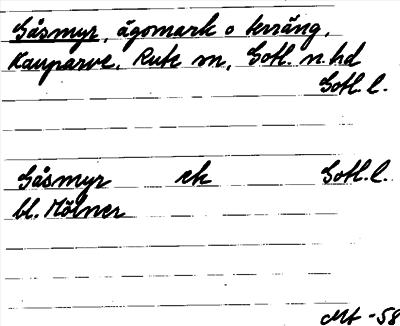 Gåsmyr, ägomark o terräng,
Kauparve, Rute sn, Gotl. n. hd
Gotl. l.
Gåsmyr ek Gotl. l.
bl. Mölner
Mt -58